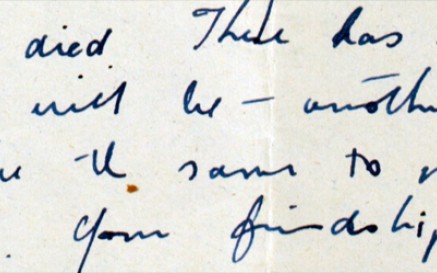 died There has
will be – anoth
the same to
your friendship